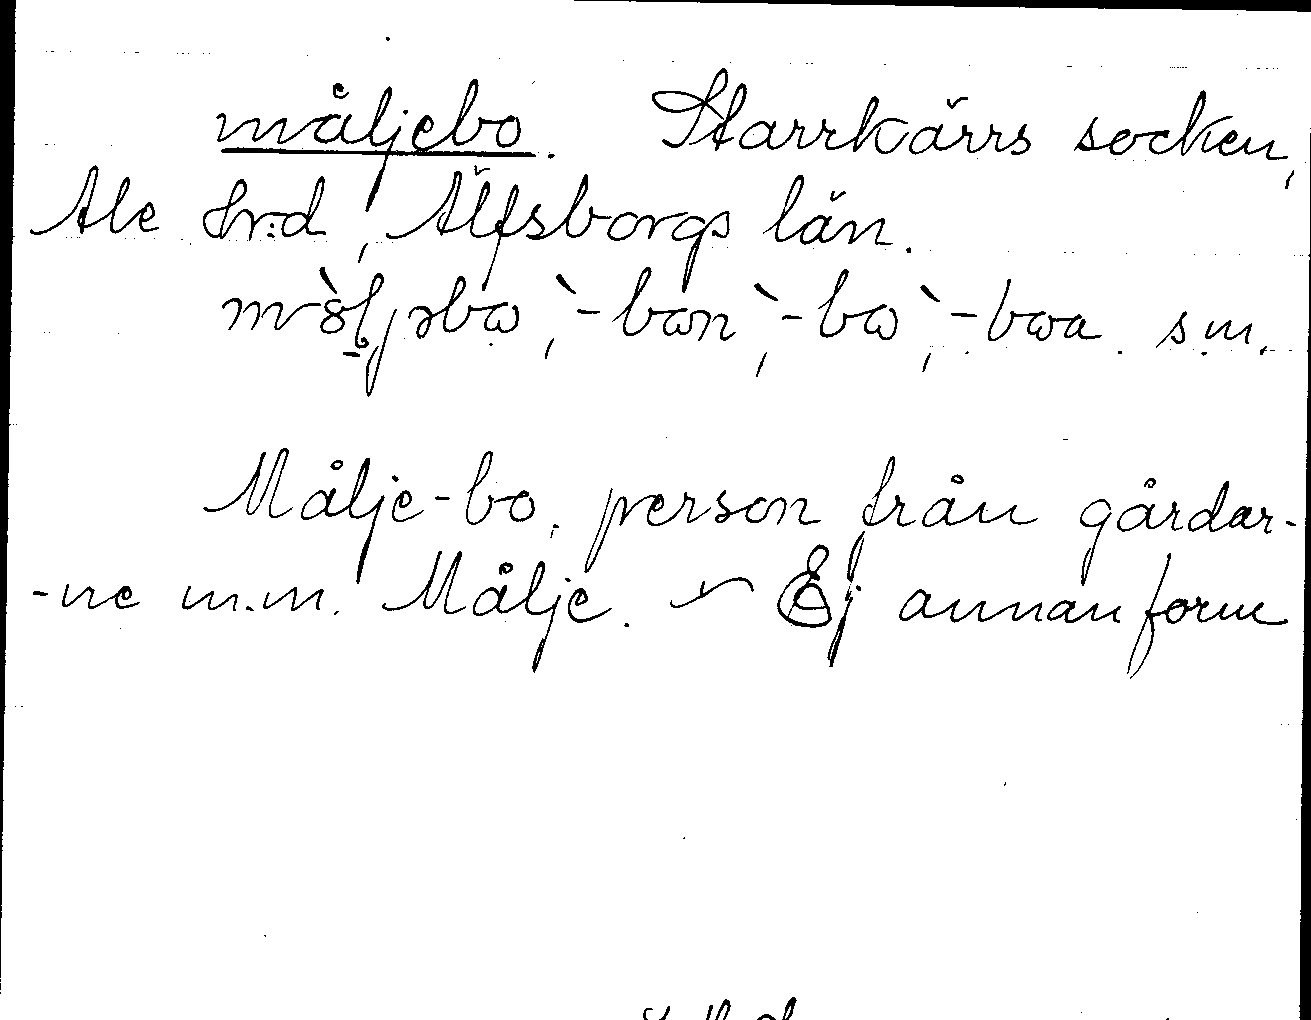 måljebo. Starrkärrs socken,
Ale hr:d, Älfsborgs län.
-bon, -bo, -boa. s.m.
Målje-bo, person från gårdar-
-ne m.m. Målje. ~ Ej annan form